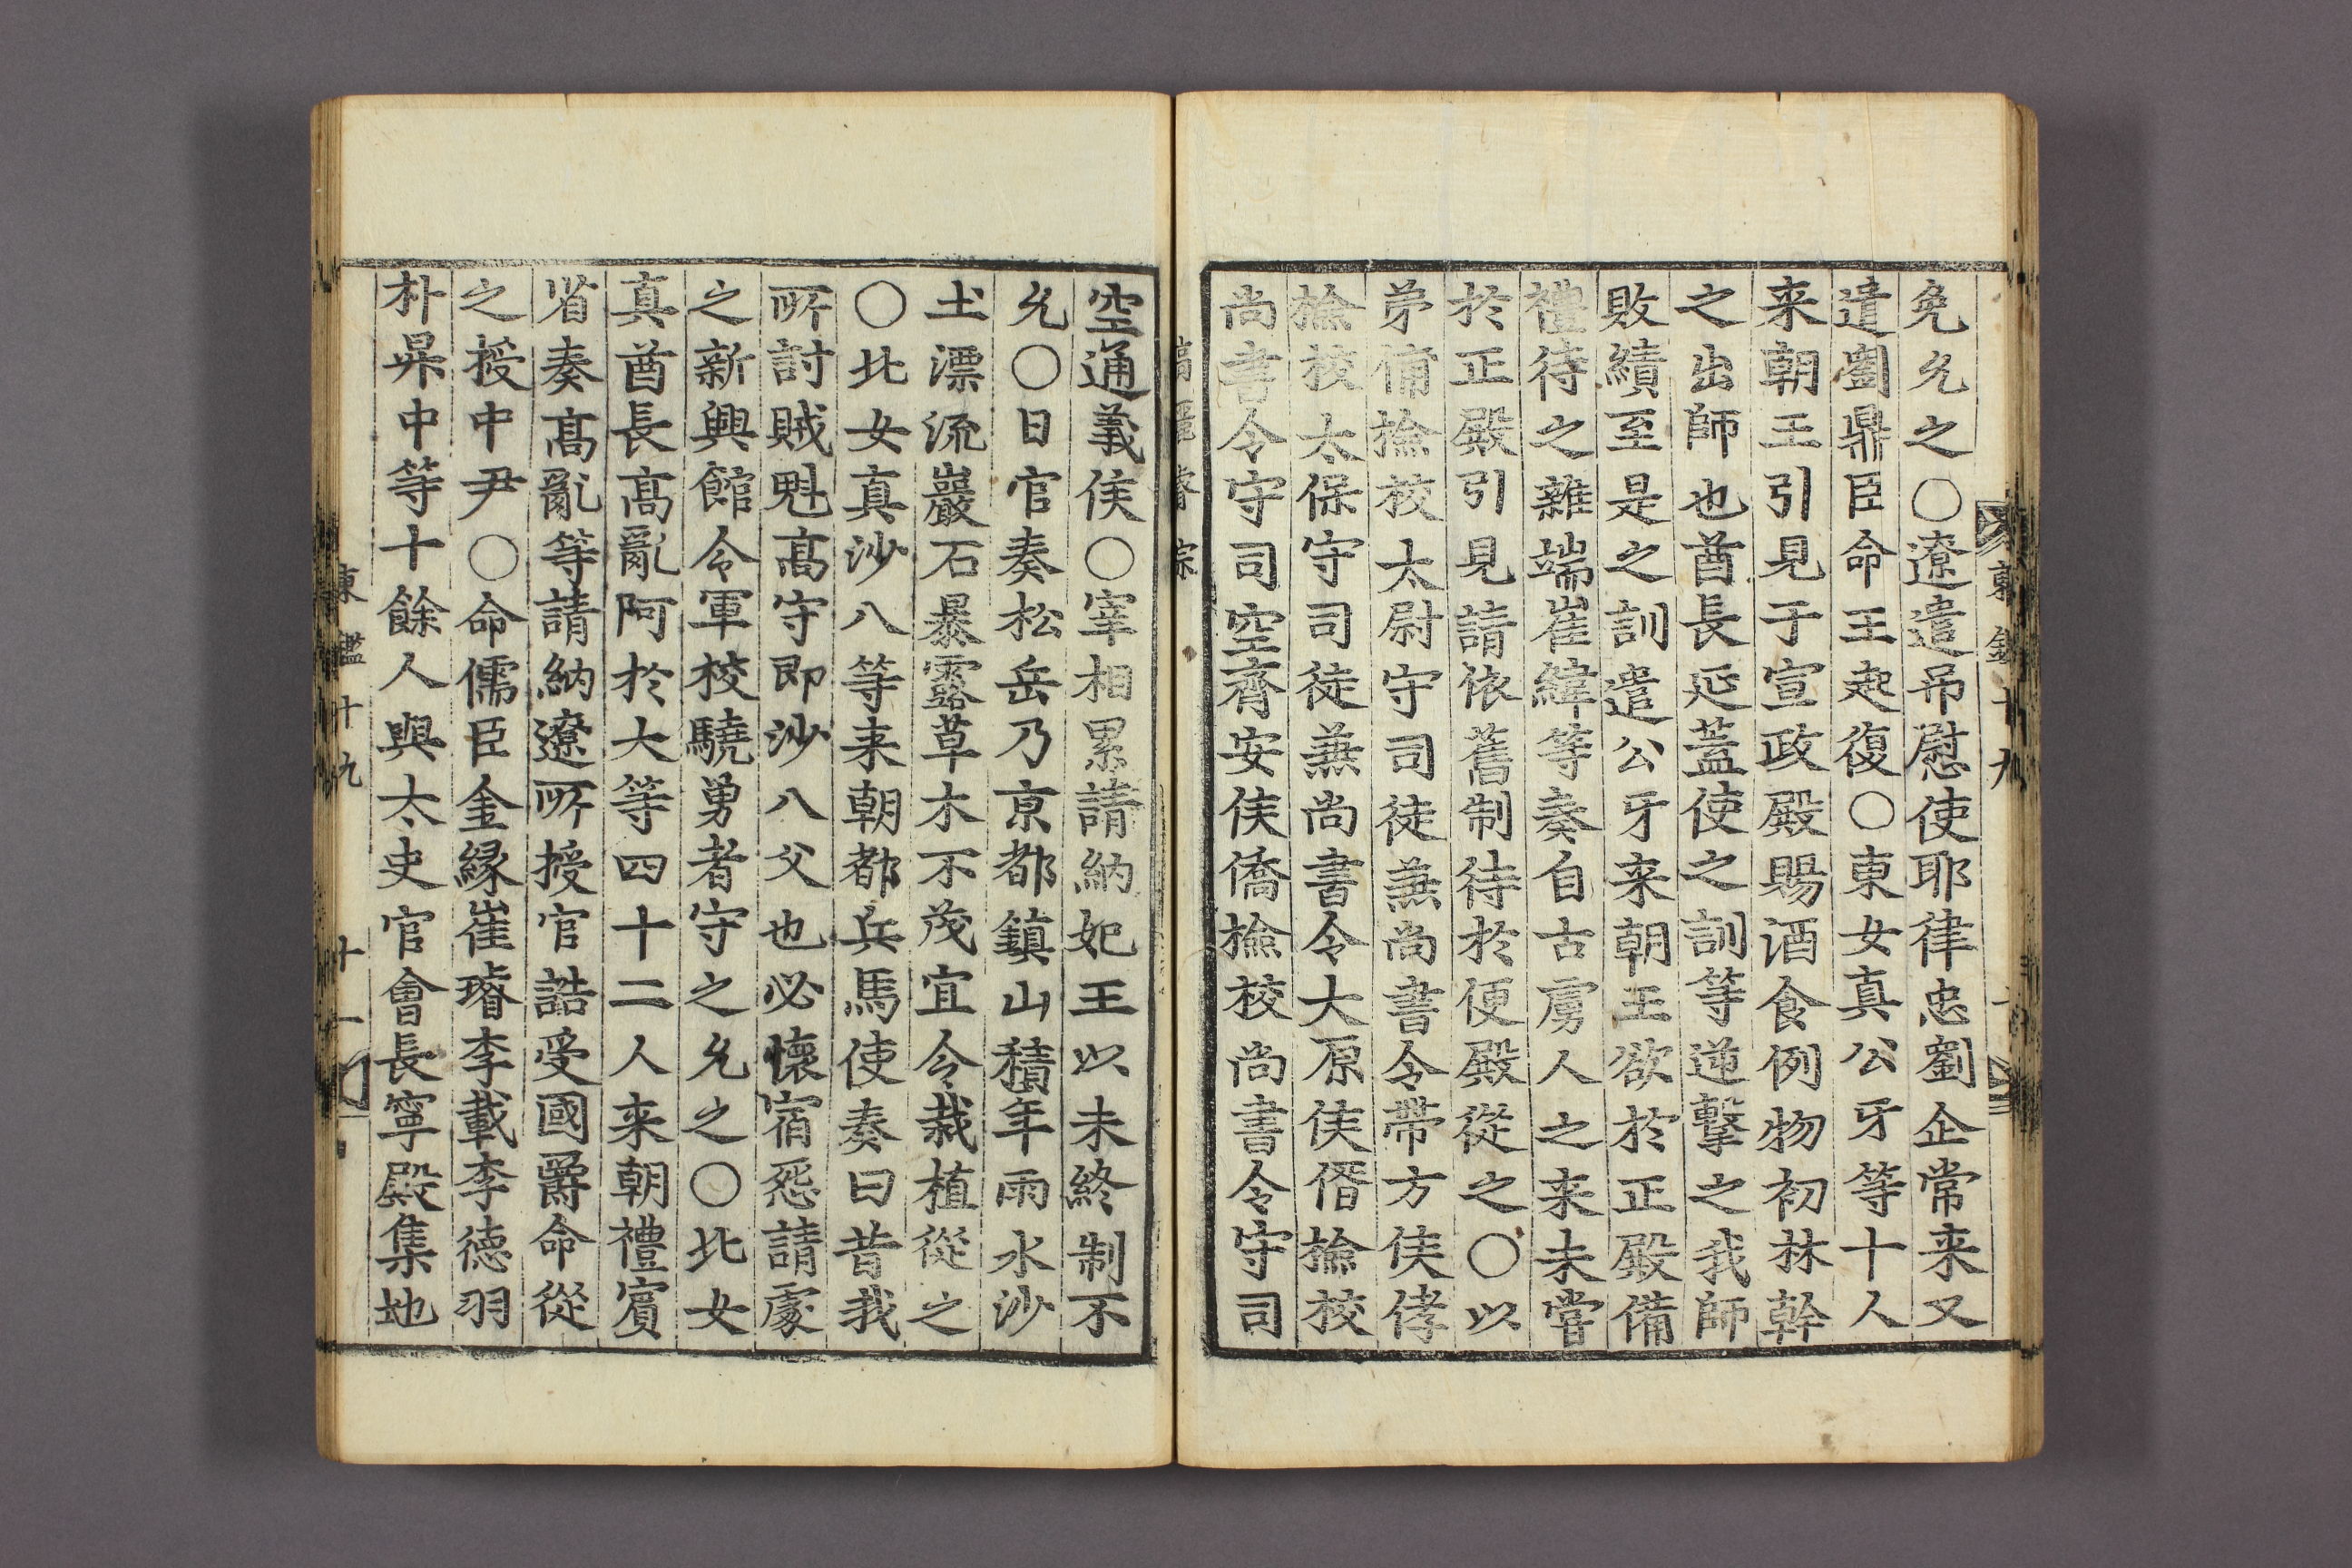 免允之○遼遣吊慰使耶律忠劉企常来又
遣劉鼎臣命王起復○東女真公牙等十人
来朝王引見于宣政殿賜酒食例物初林幹
之出師也酋長延蓋使之訓等逆擊之我師
敗績至是之訓遣公牙来朝王欲於正殿備
禮待之雜端崔緯等奏自古虜人之来未嘗
於正殿引見請依舊制待於便殿從之○以
弟俌撿校太尉守司徒兼尚書令帶方侯侾
撿校太保守司徒兼尚書令大原侯偦撿校
尚書令守司空齊安侯僑撿校尚書令守司
空通義侯○宰相累請納妃王以未終制不
允○日官奏松岳乃京都鎮山積年雨水沙
土漂流巖石暴露草木不茂宜令栽植從之
○北女真沙八等来朝都兵馬使奏曰昔我
所討賊魁高守即沙八父也必懷宿怨請處
之新興館令軍校驍勇者守之允之○北女
真酋長高亂阿於大等四十二人来朝禮賓
省奏高亂等請納遼所授官誥受國爵命從
之授中尹○命儒臣金緣崔璿李載李德羽
朴昇中等十餘人與太史官會長寧殿集地
東鑑十九
十一
東鑑十九